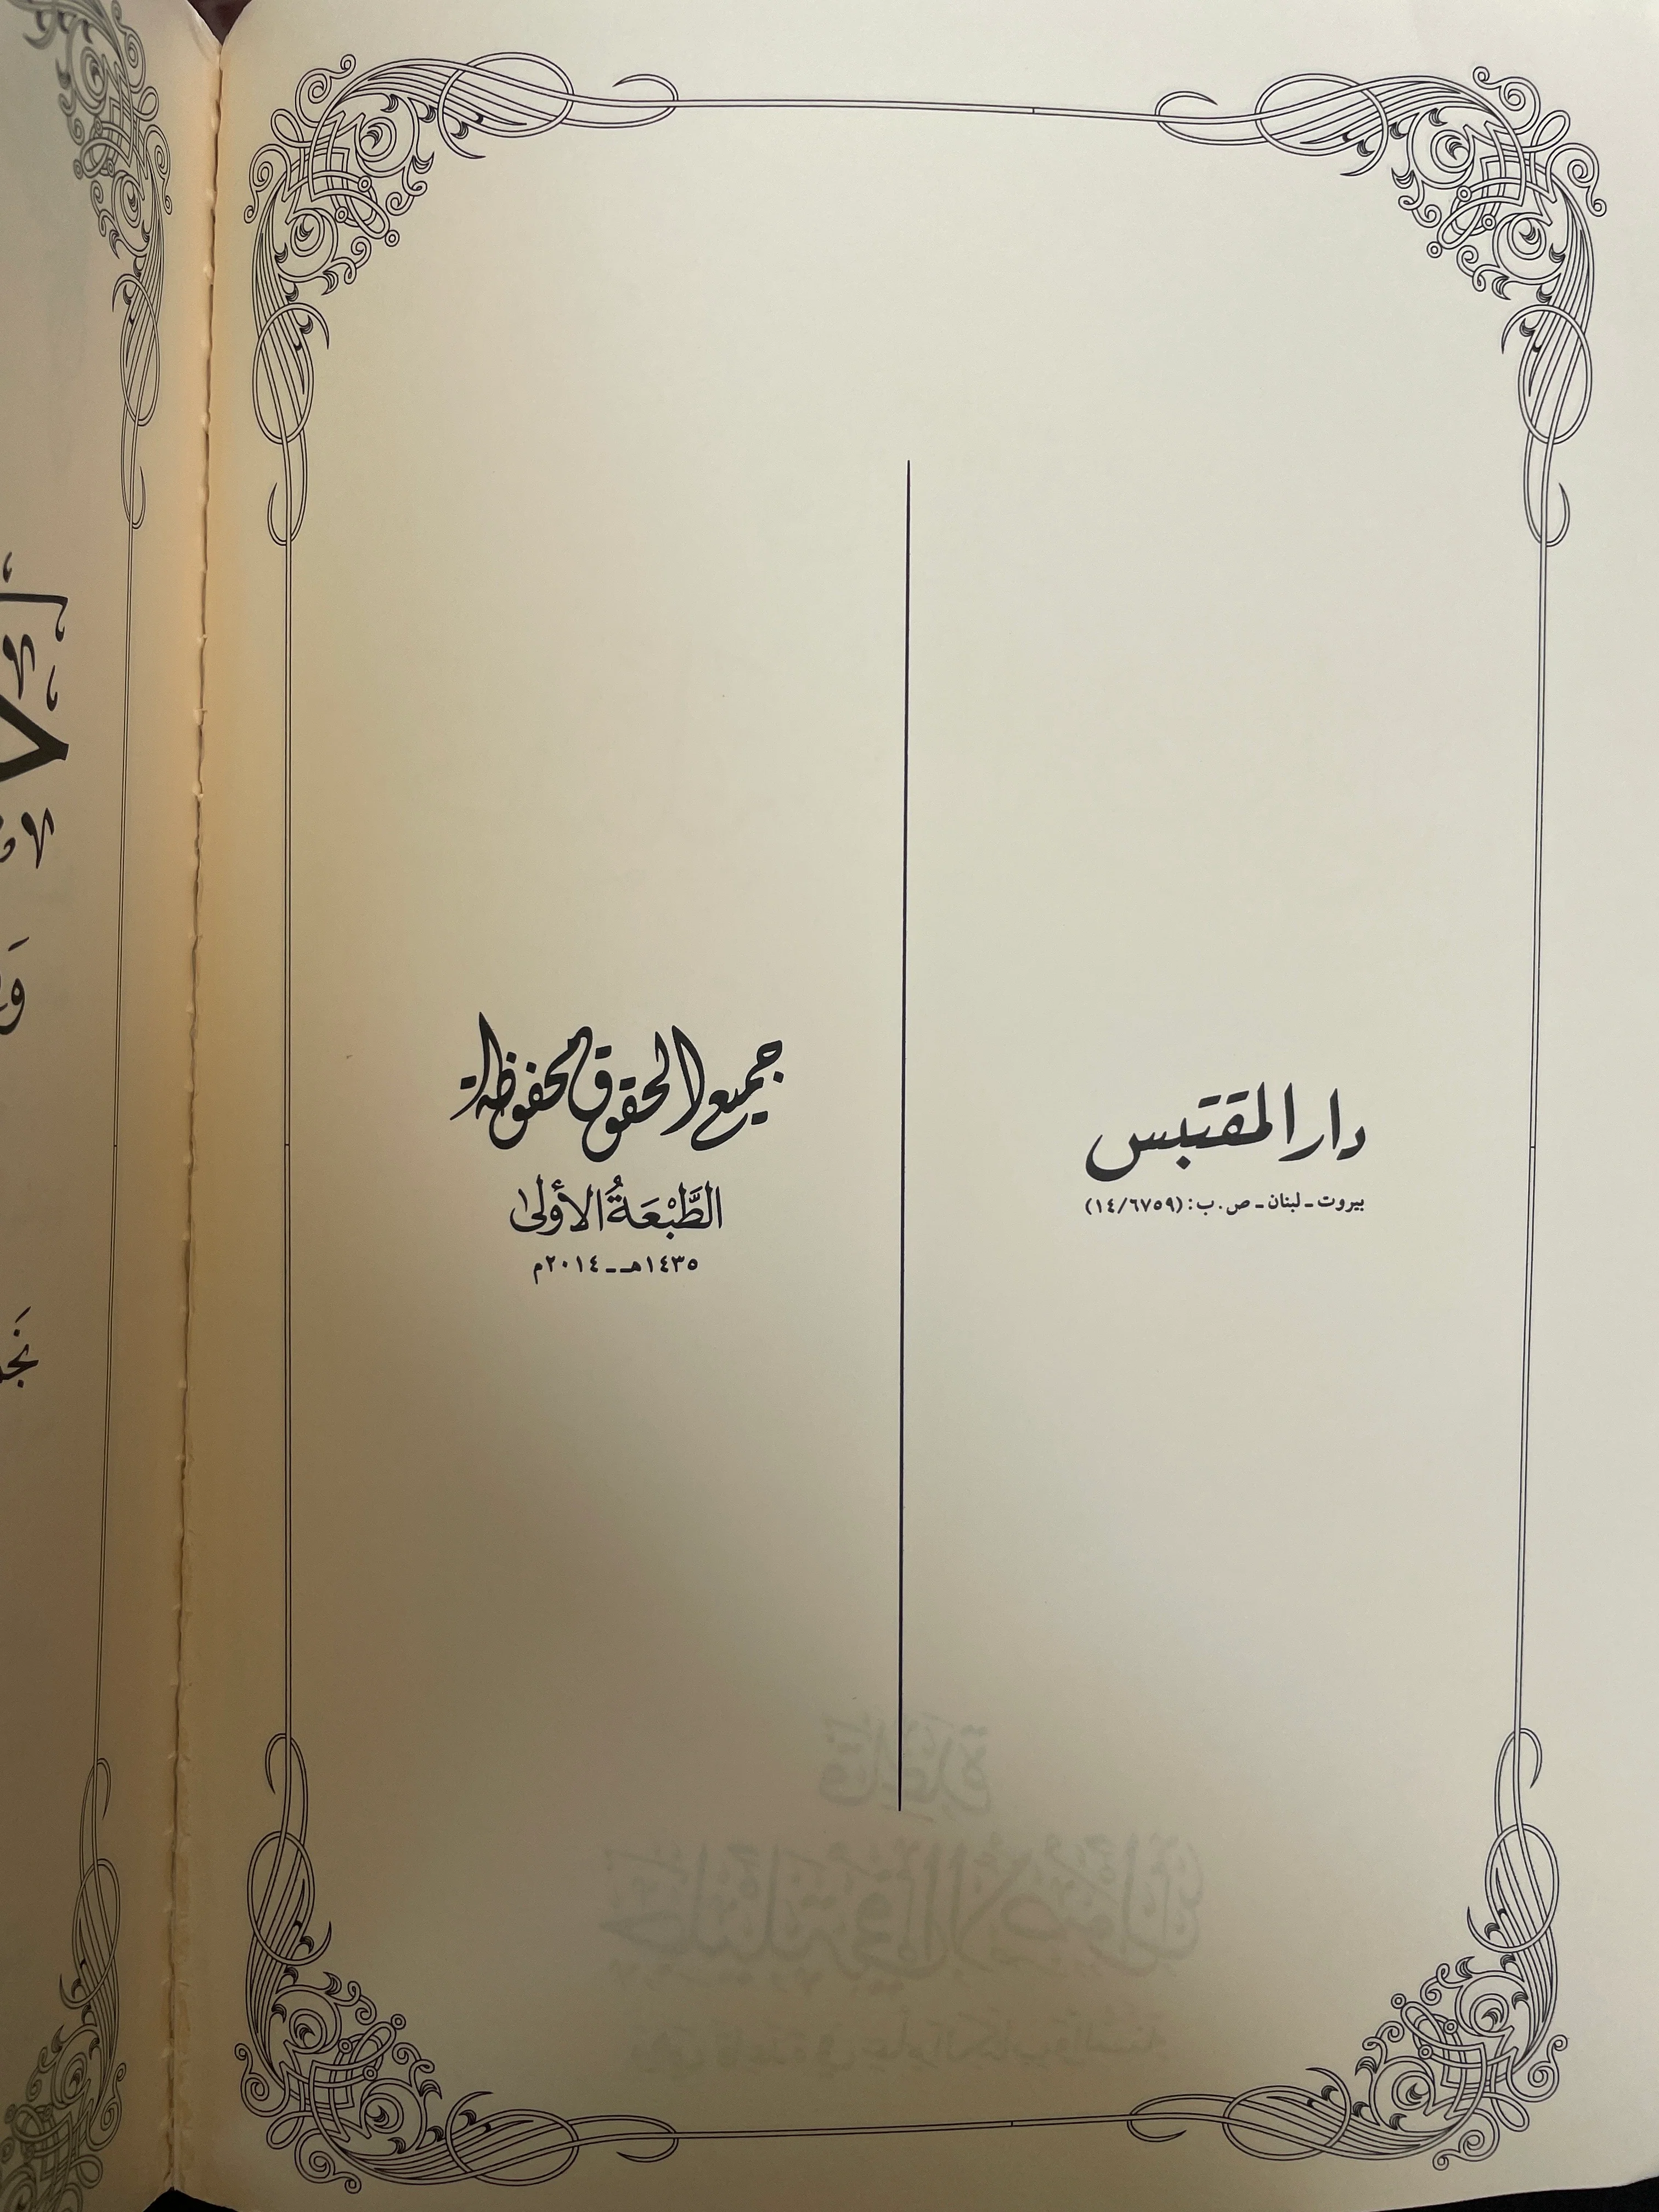 دار المقتبس
بيروت ـ لبنان ـ ص.ب: (١٤/٦٧٥٩)
جميع الحقوق محفوظة
الطَّبْعَةُ الأُولى
١٤٣٥هـ ـ ٢٠١٤م